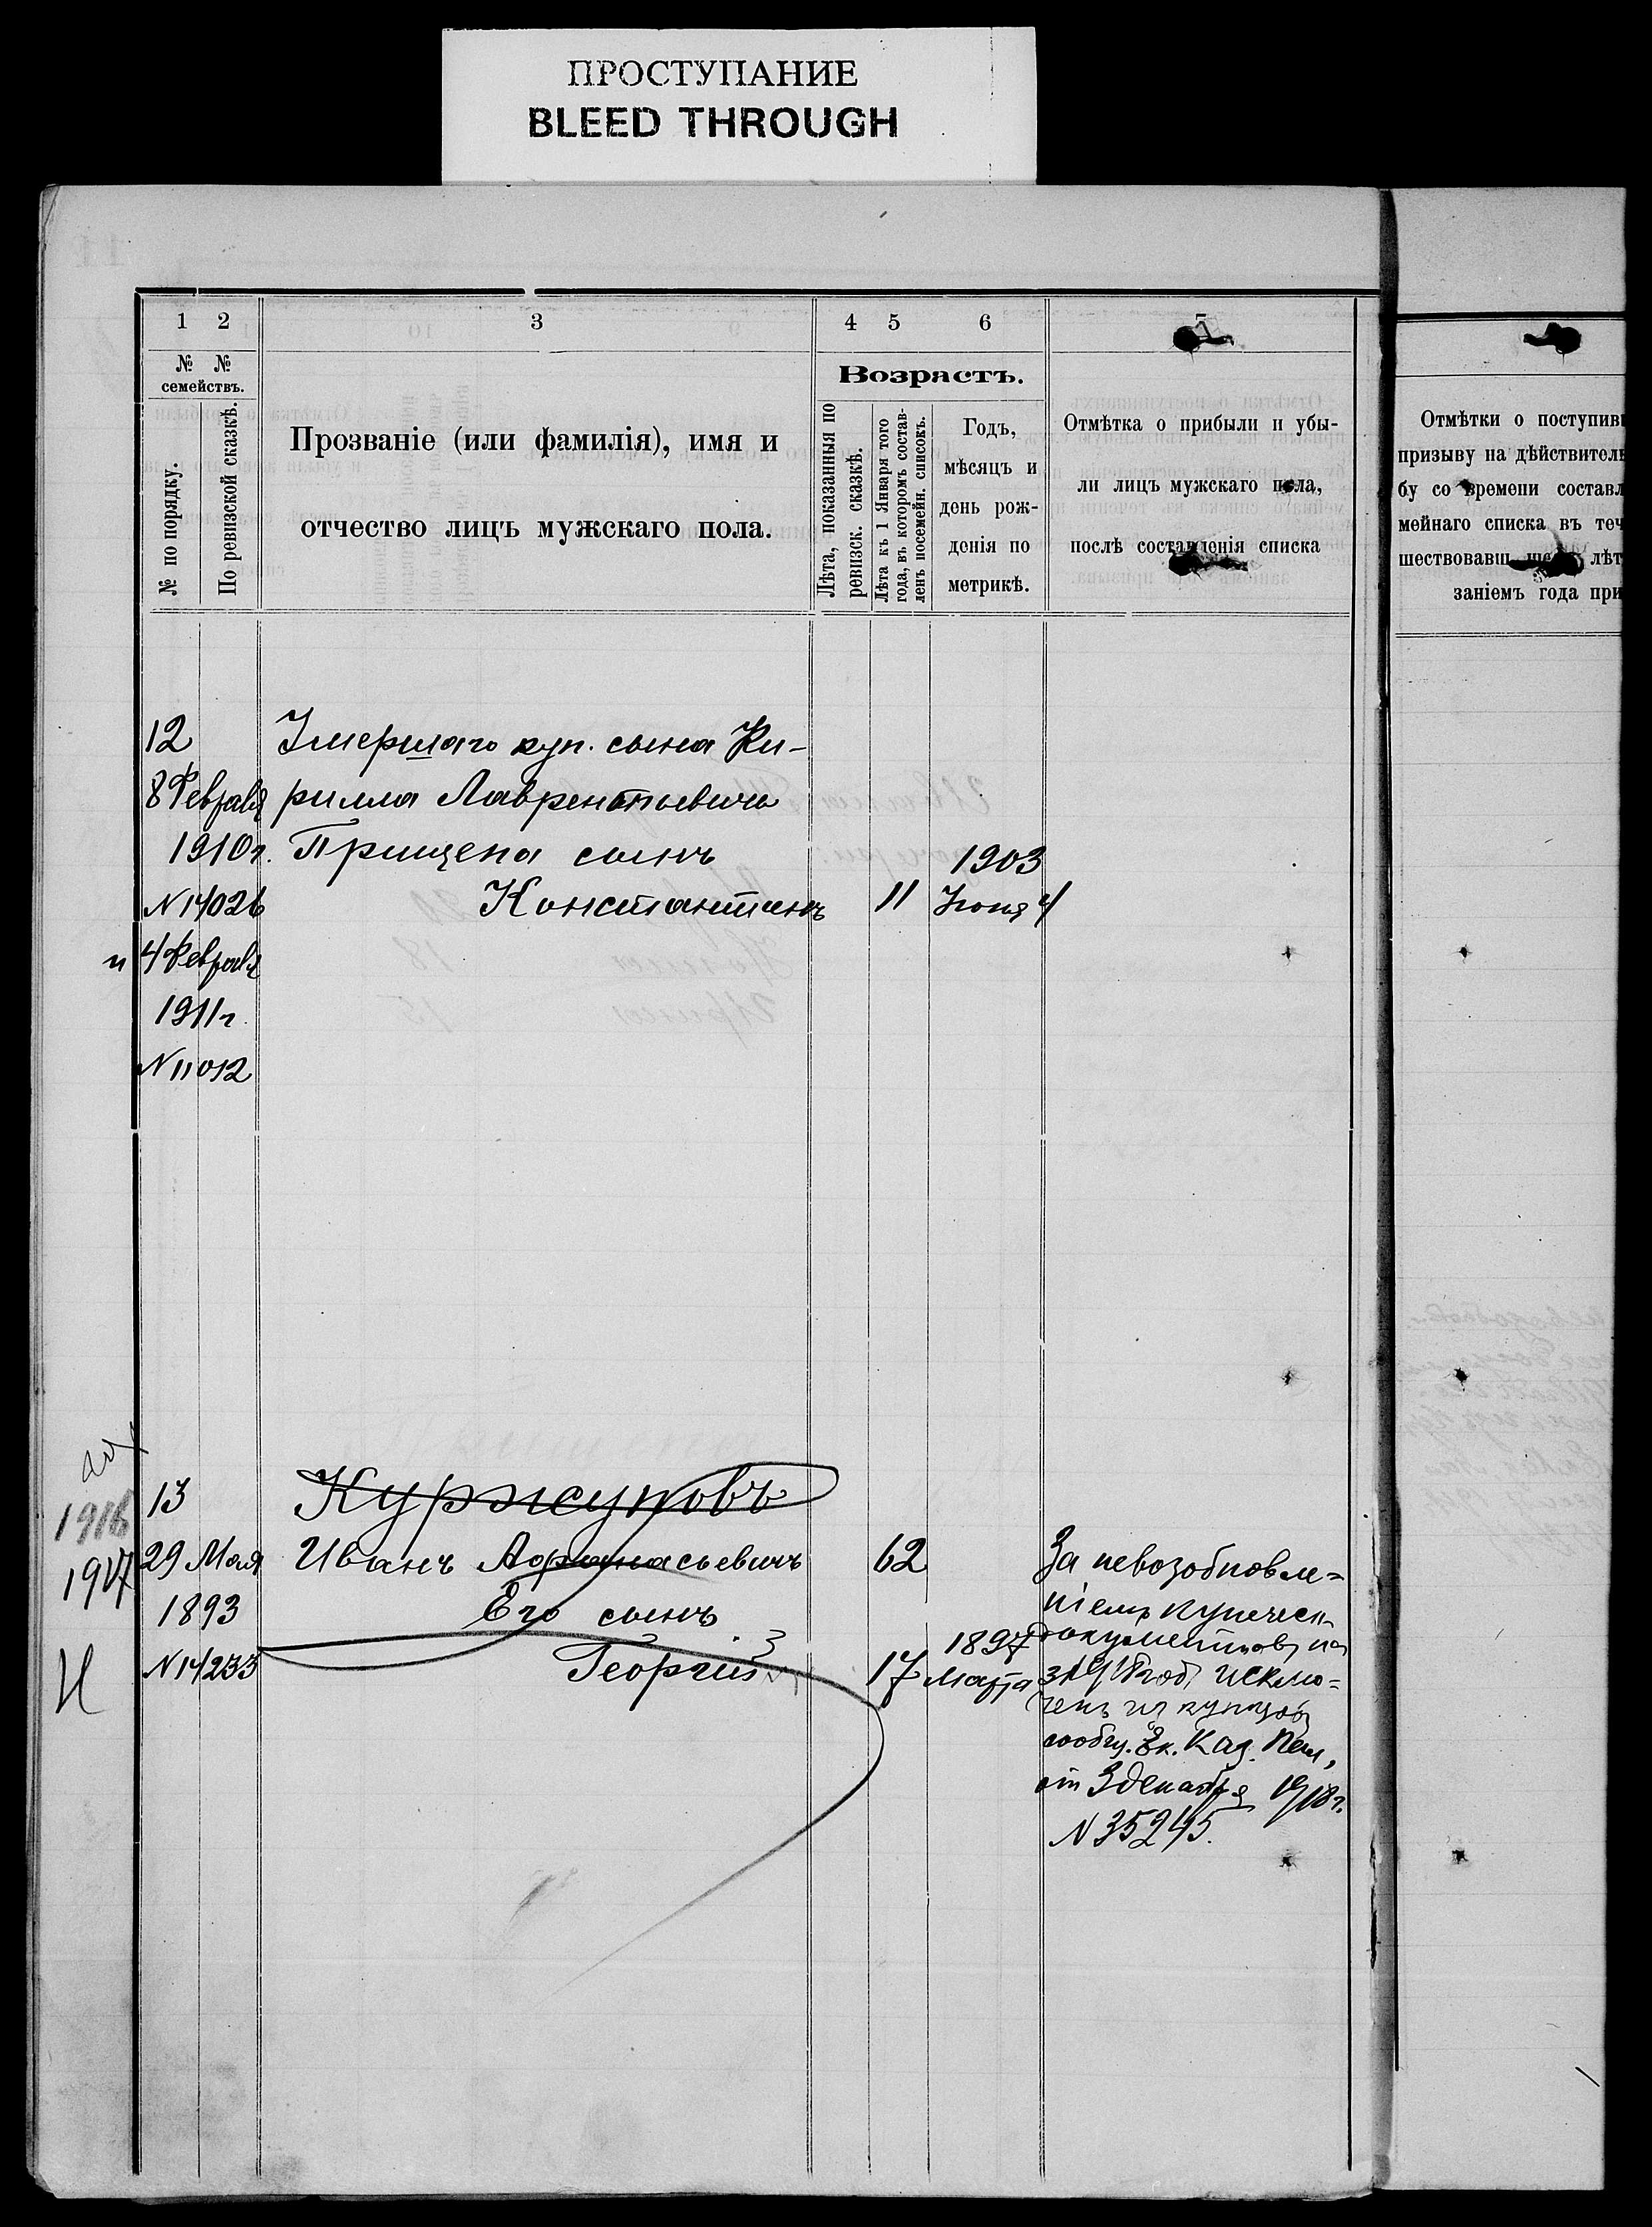 ПРОСТУПАНИЕ
BLEED THROUGH
1 2 3 4 5 6 7
№ №
семействъ.
№ по порядку.
По ревизской сказкѣ.
Прозваніе (или фамилія), имя и
отчество лицъ мужскаго пола.
Возрастъ.
Лѣта, показанныя по
ревизск. сказкѣ.
Лѣта къ 1 Января того
года, въ которомъ состав-
ленъ посемейн. списокъ.
Годъ,
мѣсяцъ и
день рож-
денія по
метрикѣ.
Отмѣтка о прибыли и убы-
ли лицъ мужскаго пола,
послѣ составленія списка
Отмѣтки о поступив
призыву на дѣйствител
бу со времени составл
мейнаго списка въ теч
шествовавш лѣт
заніемъ года при
12 Умершаго куп. сына Ки-
8 Февраля рилла Лаврентьевича
1910 г. Прищепа сынъ 1903
N 14026 Константинъ 11 Іюня 4
и 4 Февраля
1911 г.
N 11012
1916
13 Куржуповъ
1917
29 Мая Иванъ Афанасьевичъ 62 За невозобновле=
1893 Его сынъ ніемъ купеческ
1897 документовъ на
N 14233 Георгій 17 Марта 3 исклю=
ченъ из купцовъ
сообщ. Ек. Каз. Пал,
от 3 декабря 1918 г.
N 35245.
И